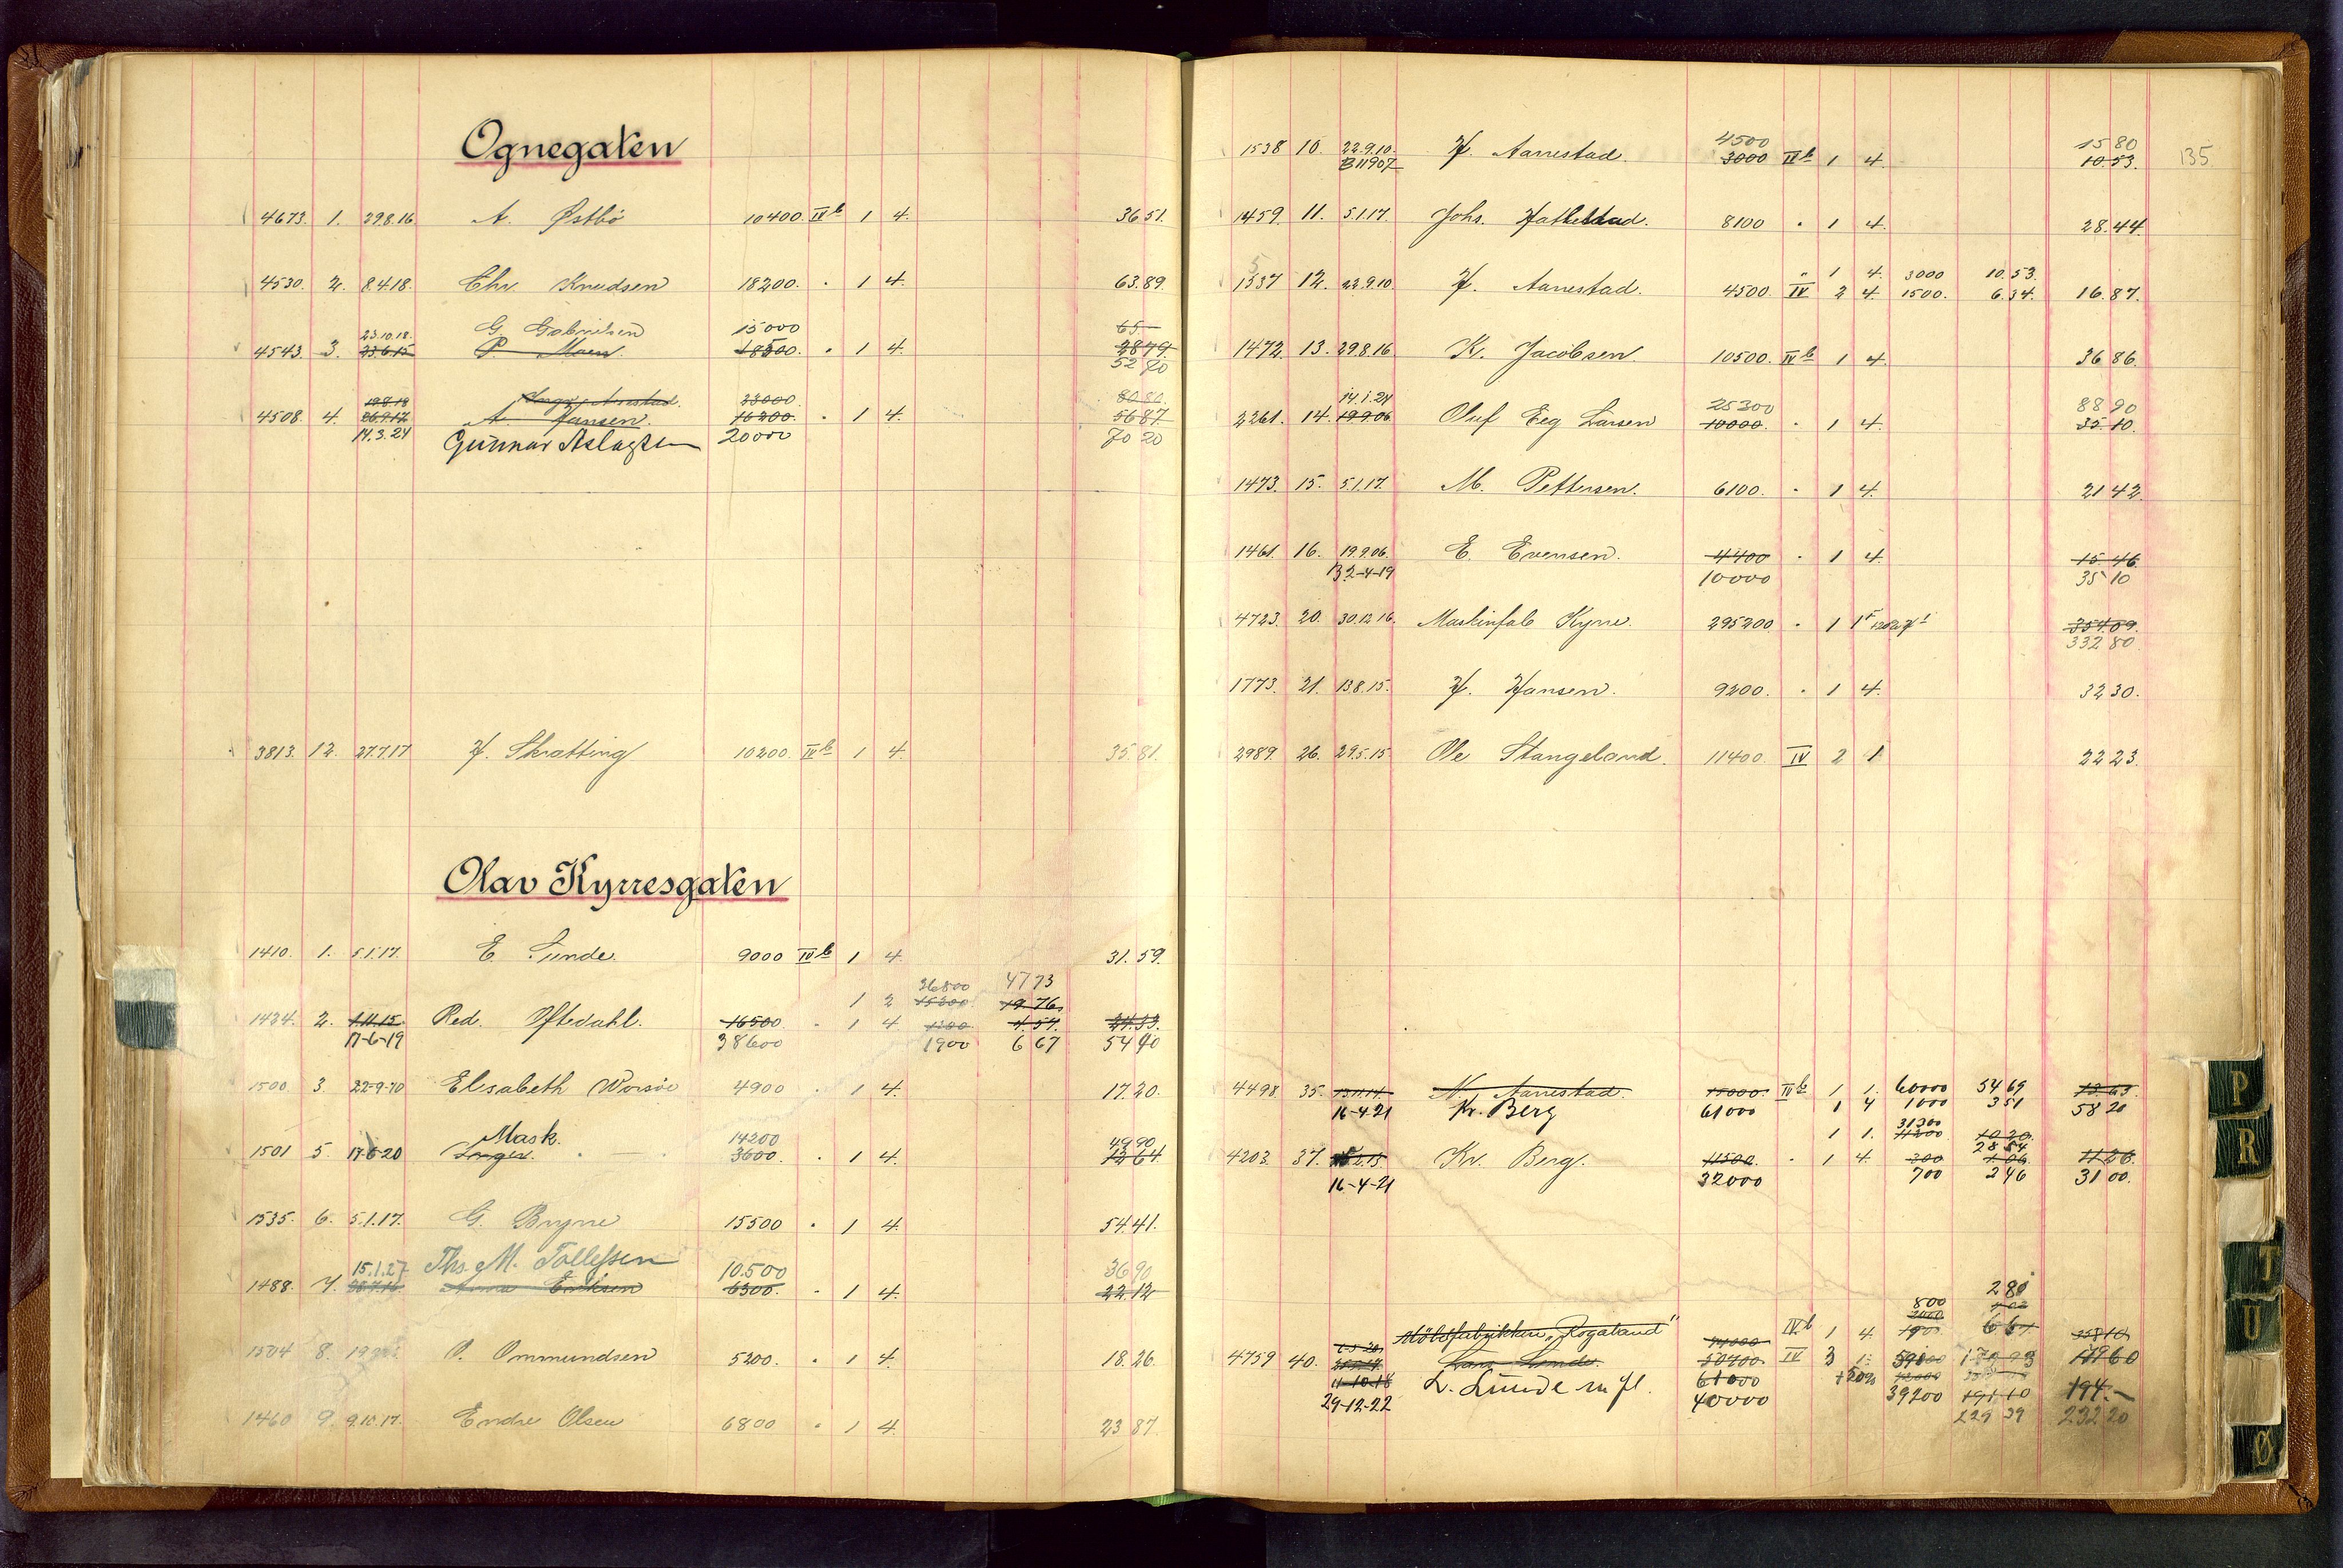 Ognegaten
4673. 1. 29.8.16 A. Østbö 10400. IVb 1 4. 36 51.
4530. 2. 8.4.18. Chr. Knudsen 18200. " 1 4. 63.89.
23.10.18. G. Gabrielsen 15000 65 -
4543. 3. 23.6.15 P. Moen. 18500. " 1 4. 28 79.
52 70
19.8.18 23000. 80 80.
4508. 4. 26.9.17 A. Jansen. 16200. " 1 4. 56 87
14.3.24 Gunnar Aslagsen 20000 70 20
3813. 12. 27.7.17 H. Skratting 10200. IVb 1 4. 35.81.
Olav Kyrresgaten
1410. 1. 5.1.17. E. Sunde. 9000 IVb 1 4. 31.59.
36800 47 73
1 2 15200 19 76
1434. 2. 1.11.15. Red. Oftedahl. 16500. " 1 4. 1300 4.57. 24.33.
17-6-19 38600 1900 6 67 54 40
1500. 3. 22-9-10 Elisabeth Worsöe 4900 " 1 4. 17.20.
Mask. 14200 49 90
1501 5. 17-6-20 Inger. " — " 3600. " 1 4. 12 64.
1535. 6. 5.1.17. G. Bryne 15500 " 1 4. 54.41.
15.1.27 Ths. M. Tollefsen 10.500 36 90
1488. 7. Anna Eriksen 6300. " 1 4. 22.12
1504 8. O. Ommundsen 5200. " 1 4. 18.26.
1460 9. 9.10.17. Endre Olsen 6800 " 1 4. 23 87.
135.
4500 15 80
1538 10. 22.9.10. H. Aarrestad. 3000 IVb 1 4. 10.53.
B11907
1459. 11. 5.1.17. Johs. 8100 " 1 4. 28.44.
5 " 1 4. 3000 10.53.
1537 12. 22.9.10 H. Aarrestad. 4500. IV 2 4. 1500. 6.34. 16.87.
1472. 13. 29.8.16 K. Jacobsen 10500. IVb 1 4. 36 86.
14.1.24 25300 88 90
2261. 14. 19.9.06. Oluf Eeg Larsen 10000. " 1 4. 35.10.
1473. 15. 5.1.17. M. Pettersen. 6100. " 1 4. 21 42.
1461. 16. 19.9.06. E. Evensen. 4400 " 1 4. 15 46.
B 2-4-19 10000 35 10
4723. 20. 30.12.16. Maskinfab Kyrre. 295200. " 1 354.09.
332 80
1773. 21. 13.8.15. H. Hansen. 9200. " 1 4. 32 30.
2989. 26. 29.5.15. Ole Stangeland. 11400. IV 2 1 22 23.
4498. 35. 13.11.14. N. Aarrestad. 15000. IVb 1 1. 60000 54 69 13.63.
16-4-21 Kr. Berg 61000 1 4 1000 3 51 58 20
31300
1 1. 11200 10.20.
28 54
4203. 37. Kr. Berg. 11500. " 1 4. 300 1.06. 11 26.
16-4-21 32000 700 2 46 31 00.
2 80
800
2000
Möbelfabrikken "Rogaland" 74000 IVb 1 4. 1900 6 67 258 10
4759 40. Lars Lunde. 50700 IV 3 1. 59800 179 93 179 60
11-10-18 L. Lunde m fl. 61000 +20% 194.-
29-12-22 40000 39200 191 10
229 39 232 20
P
R
T
U
Ø